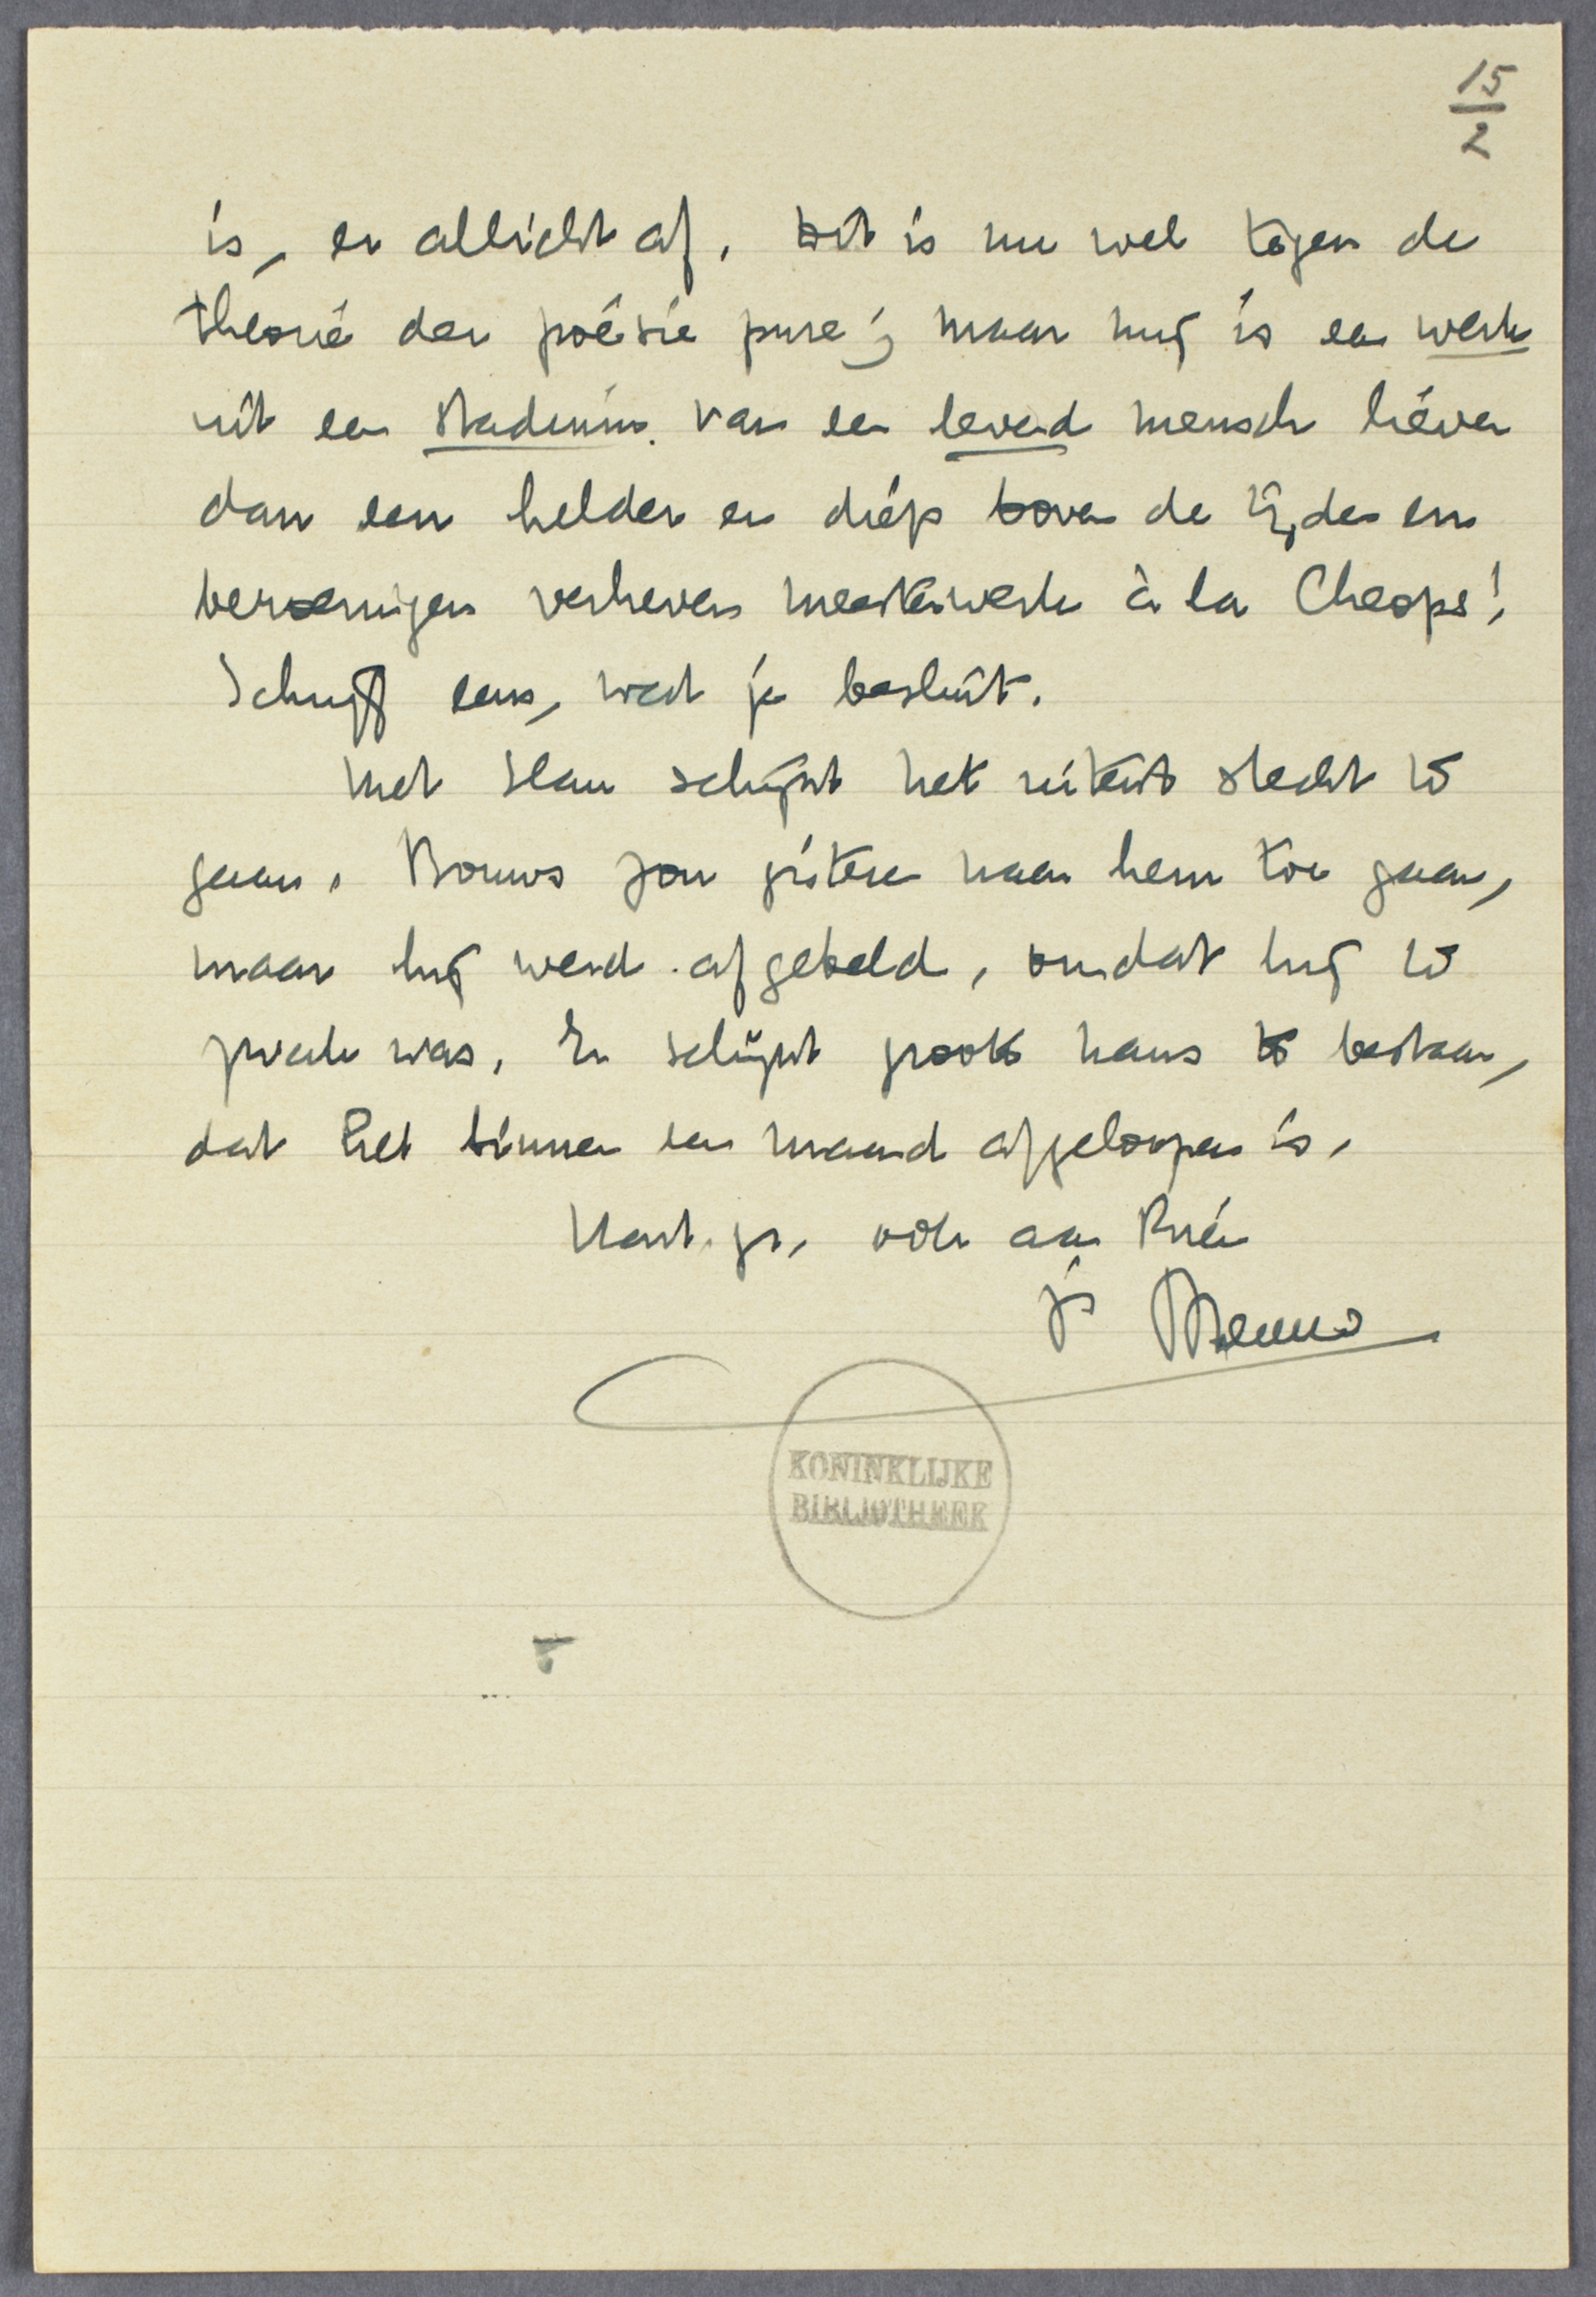 15
2
is, er allicht af. Dit is nu wel tegen de
theorie der poésie pure; maar mij is een werk
uit een stadium van een levend mensch liever
dan een helder en diep boven de tijden en
bewegingen verheven meesterwerk à la Cheops!
Schrijf eens, wat je besluit.
Met Slau schijnt het uiterst slecht te
gaan. Bouws zou gisteren naar hem toe gaan,
maar hij werd afgebeld, omdat hij te
zwak was. Er schijnt groote kans te bestaan,
dat het binnen een maand afgeloopen is.
Hart. gr. ook aan
je Menno
KONINKLIJKE
BIBLIOTHEEK